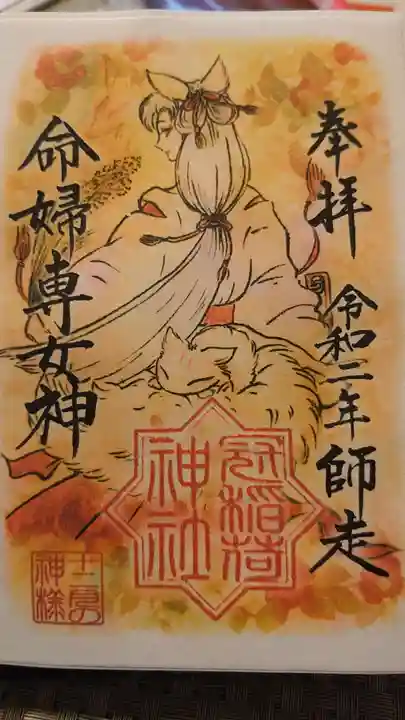 奉拝
令和二年師走
冠稲荷
神社
命婦専女神